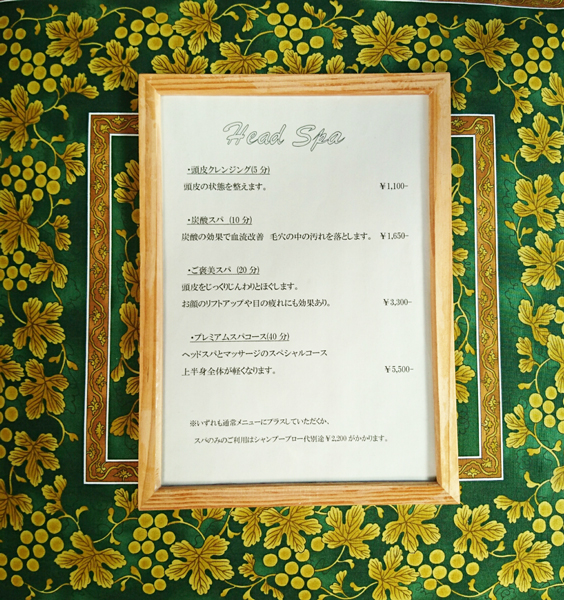 Head Spa
・頭皮クレンジング(5 分)
頭皮の状態を整えます。 ￥1,100-
・炭酸スパ (10 分)
炭酸の効果で血流改善 毛穴の中の汚れを落とします。 ￥1,650-
・ご褒美スパ (20 分)
頭皮をじっくりじんわりとほぐします。
お顔のリフトアップや目の疲れにも効果あり。 ￥3,300-
・プレミアムスパコース(40 分)
ヘッドスパとマッサージのスペシャルコース
上半身全体が軽くなります。 ￥5,500-
※いずれも通常メニューにプラスしていただくか、
スパのみのご利用はシャンプーブロー代別途￥2,200 がかかります。